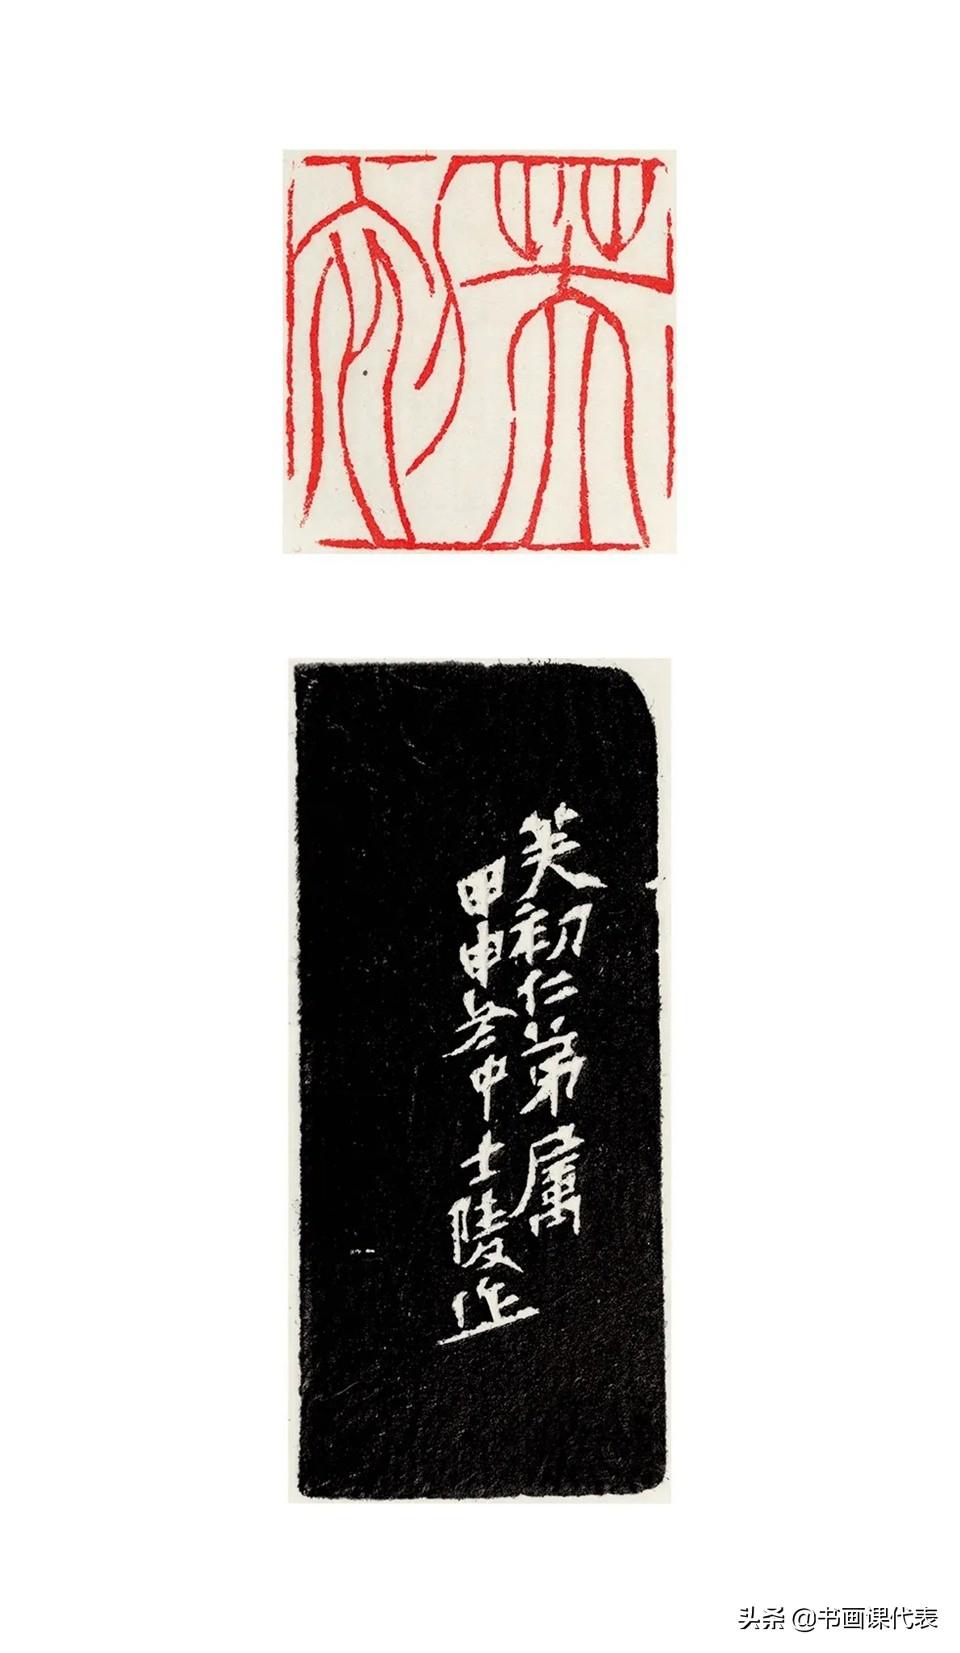 芙初
芙初仁弟属
甲申中士陵作
头条 @书画课代表